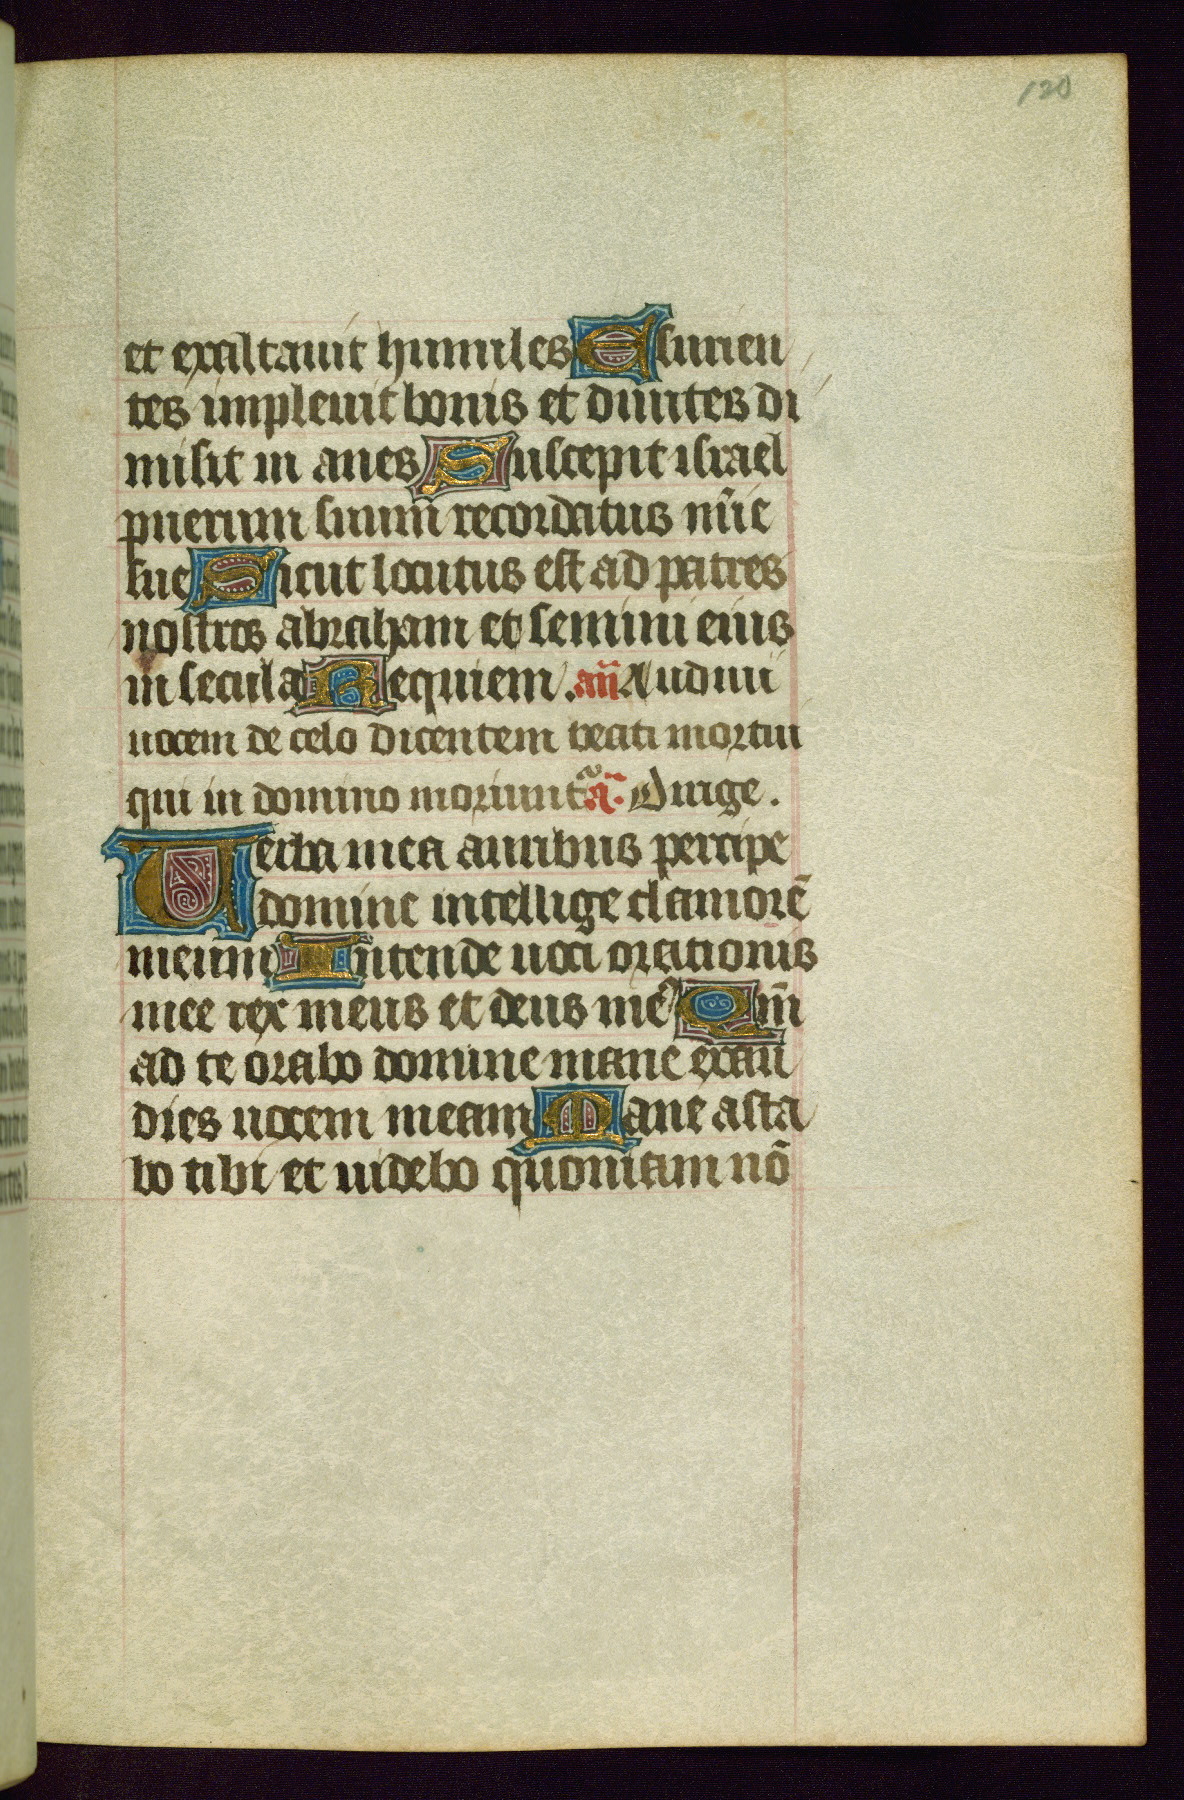 120
et exaltauit humiles Esurien
tes impleuit bonis et diuites di
misit in anes Suscepit israel
puerum suum recordatus mīe
sue Sicut locutus est ad patres
nostros abraham et semini eius
in secula Requiem. añ Audiui
uocem de celo dicentem beati mortui
qui in domino moriunt᷑ a᷑. Dirige.
Uerba mea auribus percipe
domine intellige clamorē
meum Intende uoci orationis
mee rex meus et deus meꝰ Qm̄
ad te orabo domine mane exau
dies uocem meam Mane asta
bo tibi et uidebo quoniam nō